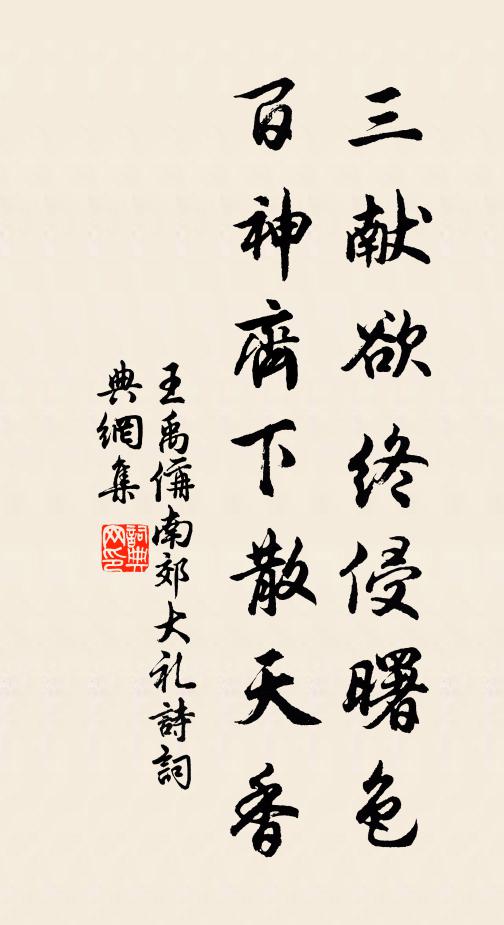 三献欲终侵曙色
百神齊下散天香
王禹偁南郊大礼詩詞
典網集
詞典網印